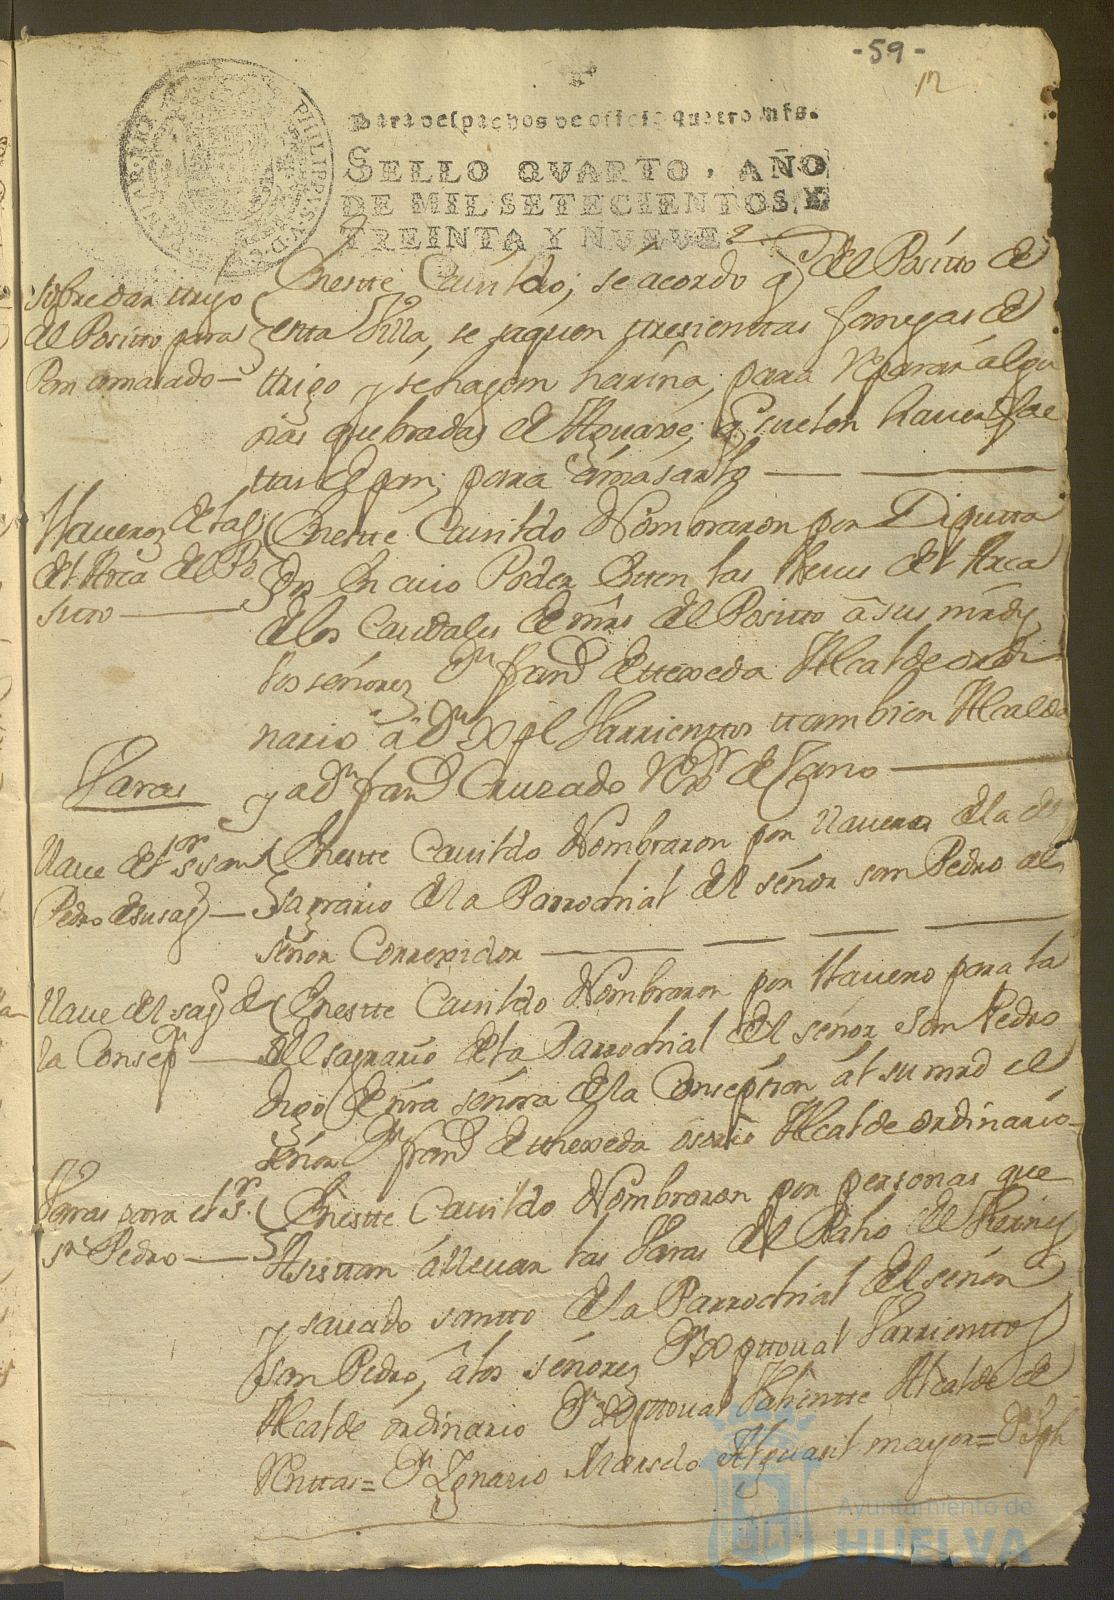 -59-
12
Para despachos de oficio quatro mrs.
SELLO QVARTO, AÑO
DE MIL SETECIENTOS, Y
TREINTA Y NVEVE.
PHILIPPVS V D G
sobre dar ttrigo
del Positto para
Pan amasado
Enestte Cavildo, se acordo q del Positto de
esta Villa, se saquen ttresientas fanegas de
ttrigo y se hagan harina, para reparar algu
nas quebradas de que suelen haver fal
ttas de pan, para amasarlo
Llaveros de las
del Arca del Po
sitto
Enestte Cavildo Nombraron por Diputta
dos En cuio Poder Esten las llaves del Arca
de los Caudales de mrs del Positto â sus mrds
los señores Dn Franco de ttexeda Alcalde ordi
nario â Dn Xpl Varrienttos ttambien Alcalde
y a Dn Franco Cruzado
Varas
llave del Sr San
Pedro de su sago
Enestte Cavildo Nombraron por llavero de la del
sagrario de la Parrochial del señor san Pedro al
señor Correxidor
llave del sago de
la Consepn
Enestte Cavildo Nombraron por llavero para la
del sagrario de la Parrochial del señor san Pedro
digo de nra señora de la Consepsion âl su mrd el
señor Dn Franco de ttexeda osorio Alcalde ordinario
Varas para el Sr
Sn Pedro
Enestte Cavildo Nombraron por personas que
Asistan â llevar las Varas del Palio el Vierne
y savado santto de la Parrochial del señor
san Pedro, â los señores Dn Xpttoval Varrienttos
Alcalde ordinario Dn Xpttoval Valientte Alcalde de
Renttas= Dn Ignacio Alguasil mayor= Dn Jph
Ayuntamiento de
HUELVA